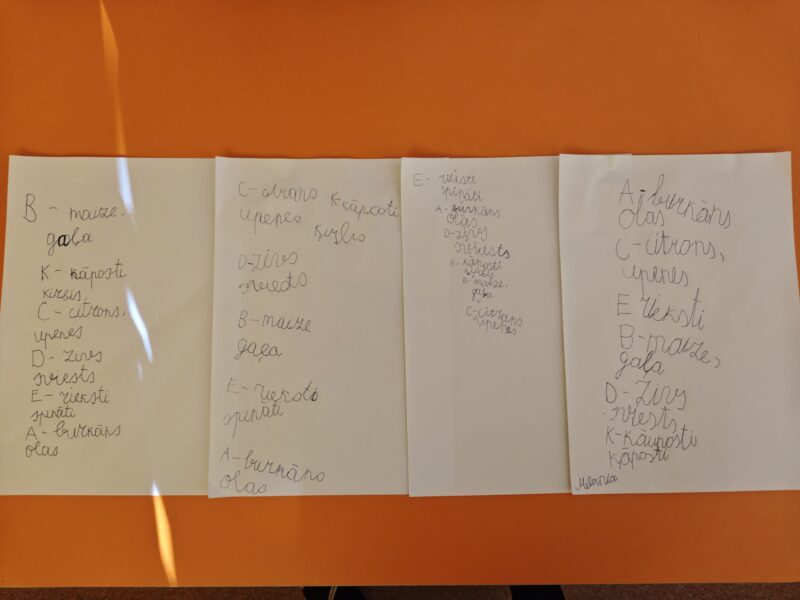 B - maize.
gaļa
K - kāposti
kirbis,
C - citrons,
upenes
D - zivs
sviests
E - rieksti
spināti
A - burkāns
olas
C-citrons
upenes
K-kāposti
Ķirbis
D-zivs
sviests
B-maize
gaļa
E-rieksti
spināti
A-burkāns
olas
E - rieksti
spināti
A - burkāns
olas
D-zivs
sviests
K-kāposti
B-maize.
gaļa
C-citrons
upenes
A-burkāns
Olas
C-citrons,
upenes
E rieksti
B-maize,
gaļa
D-zivs
sviests
K-kāposti
Ķāposti